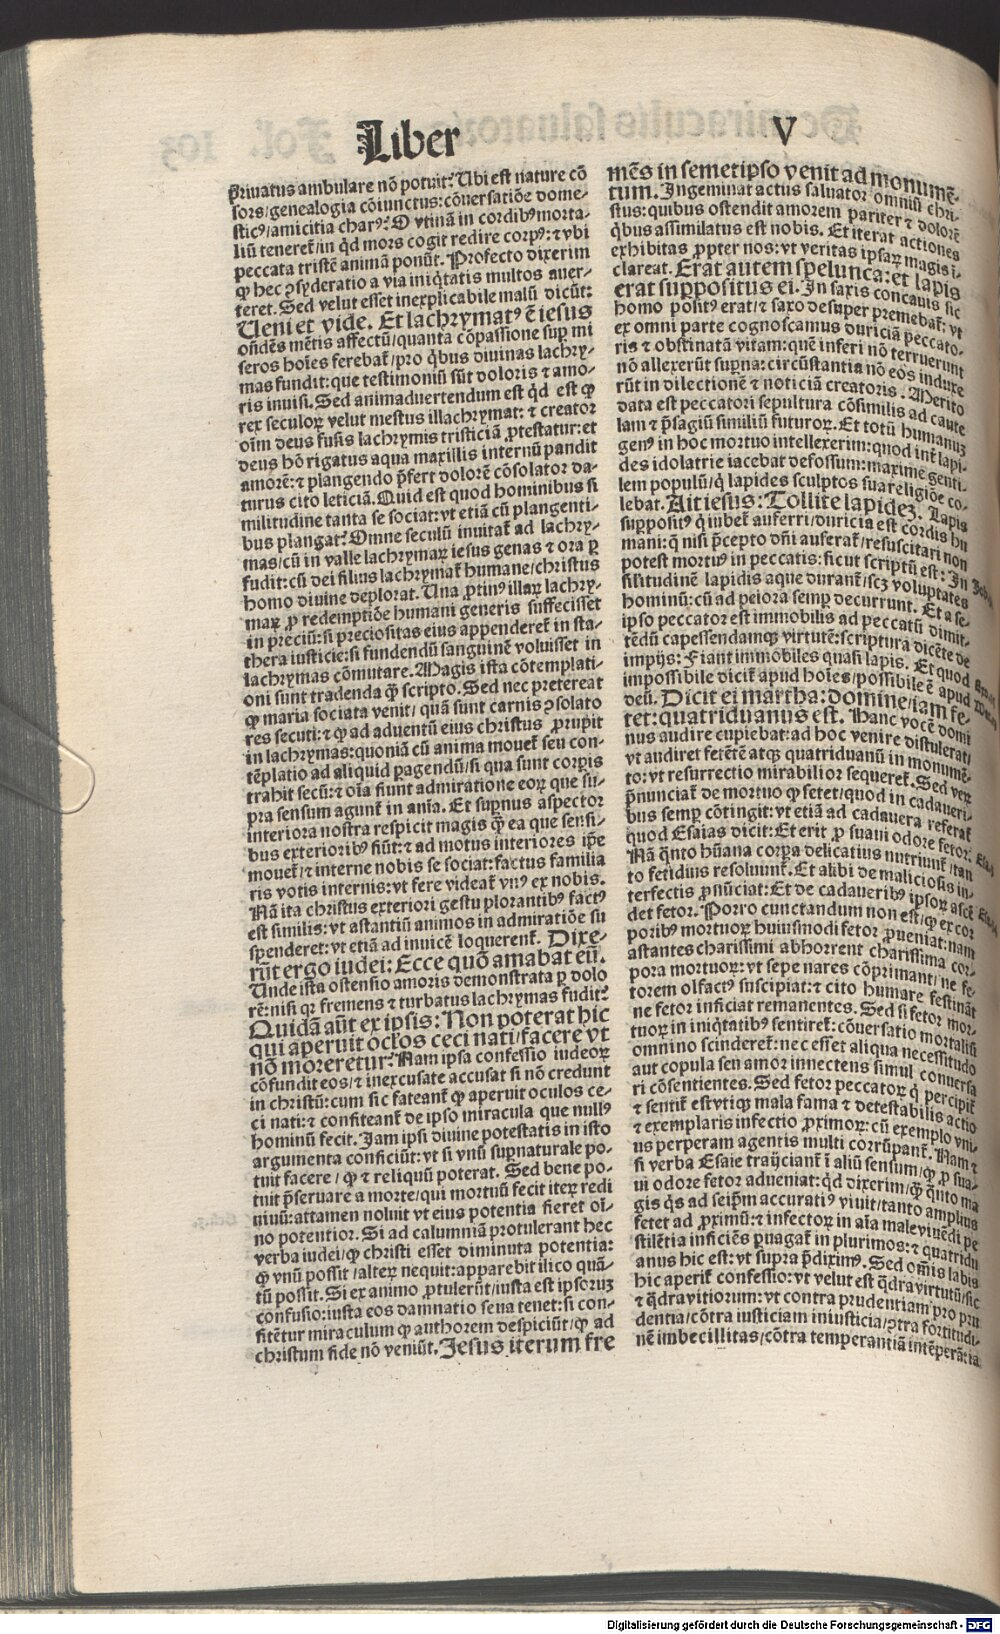 Liber V
privatus ambulare nõ potuit? Ubi est nature cõ
sors/genealogia cõiunctus: cõversatiõe dome-
sticꝰ/amicitia charꝰ? O vtinã in cordibꝰ morta-
liũ teneret̃/in qd̃ mors cogit redire corpꝰ: ⁊ vbi
peccata tristẽ animã ponũt. Profecto dixerim
ꝙ hec ꝯsyderatio a via iniq̃tatis multos auer-
teret. Sed velut esset inexplicabile malũ dicũt:
Ueni et vide. Et lachrymatꝰ ẽ iesus
oñdẽs mẽtis affectũ/quanta cõpassione suꝑ mi
seros hoĩes ferebat̃/pro qĩbus diuinas lachry-
mas fundit: que testimoniũ sũt doloris ⁊ amo-
ris inuisi. Sed animaduertendum est qd̃ est ꝙ
rex seculoꝝ velut mestus illachrymat: ⁊ creator
oĩm deus fusis lachrymis tristiciã ꝓtestatur: et
deus hõ rigatus aqua maxillis internũ pandit
amorẽ: ⁊ plangendo p̃fert dolorẽ cõsolator da-
turus cito leticiã. Quid est quod hominibus si
militudine tanta se sociat: vt etiã cũ plangenti-
bus plangat? Omne seculũ inuitat̃ ad lachry-
mas/cũ in valle lachrymaꝝ iesus genas ⁊ ora ꝑ
fudit: cũ dei filius lachrymat̃ humane/christus
homo diuine deplorat. Una ꝓtinꝰ illaꝝ lachry-
maꝝ ꝓ redemptiõe humani generis suffecisset
in preciũ: si preciositas eius appenderet̃ in sta-
thera iusticie: si fundendũ sanguinẽ voluisset in
lachrymas cõmutare. Magis ista cõtemplati-
oni sunt tradenda q̃ꝫ scripto. Sed nec pretereat
ꝙ maria sociata venit/ quã sunt carnis ꝯsolato
res secuti: ⁊ ꝙ ad aduentũ eius christus ꝓrupit
in lachrymas: quoniã cũ anima mouet̃ seu con-
tẽplatio ad aliquid ꝑagendũ/si qua sunt corꝑis
trahit secũ: ⁊ oĩa fiunt admiratione eoꝝ que su-
pra sensum agunt̃ in aĩa. Et suꝑnus aspector
interiora nostra respicit magis q̃ꝫ ea que sensi-
bus exterioribꝰ fiũt: ⁊ ad motus interiores ip̃e
mouet̃/⁊ interne nobis se sociat: factus familia
ris votis internis: vt fere videat̃ vnꝰ ex nobis.
Nã ita christus exteriori gestu plorantibꝰ factꝰ
est similis: vt astantiũ animos in admiratiõe su
spenderet: vt etiã ad inuicẽ loquerent̃. Dixe-
rũt ergo iudei: Ecce quõ amabat eũ.
Unde ista ostensio amoris demonstrata ꝑ dolo
rẽ: nisi qꝛ fremens ⁊ turbatus lachrymas fudit?
Quidã aũt ex ipsis: Non poterat hic
qui aperuit oc̃los ceci nati/facere vt
nõ moreretur? Nam ipsa confessio iudeoꝝ
cõfundit eos/⁊ inexcusate accusat si nõ credunt
in christũ: cum sic fateant̃ ꝙ aperuit oculos ce-
ci nati: ⁊ confiteant̃ de ipso miracula que nullꝰ
hominũ fecit. Jam ipsi diuine potestatis in isto
argumenta conficiũt: vt si vnũ suꝑnaturale po-
tuit facere/ ꝙ ⁊ reliquũ poterat. Sed bene po-
tuit p̃seruare a morte/qui mortuũ fecit iteꝝ redi
uiuũ: attamen noluit vt eius potentia fieret oĩ-
no potentior. Si ad calumniã protulerant hec
verba iudei/ꝙ christi esset diminuta potentia:
ꝙ vnũ possit/alteꝝ nequit: apparebit ilico quã-
tũ possit. Si ex animo ꝓtulerũt/iusta est ipsoꝝ
confusio: iusta eos damnatio seua tenet: si con-
fitẽtur miraculum ꝙ authorem despiciũt/ꝙ ad
christum fide nõ veniũt. Jesus iterum fre
mẽs in semetipso venit ad monumẽ-
tum. Ingeminat actus saluator omniũ chri-
stus: quibus ostendit amorem pariter ⁊ dolorẽ
qĩbus assimilatus est nobis. Et iterat actiones
exhibitas ꝓpter nos: vt veritas ipsaꝝ magis i-
clareat. Erat autem spelunca: et lapis
erat suppositus ei. In saxis concauis sic
homo positꝰ erat/⁊ saxo desuper premebat̃: vt
ex omni parte cognoscamus duriciã peccato-
ris ⁊ obstinatã vitam: quẽ inferi nõ terruerunt
nõ allexerũt suꝑna: circũstantia nõ eos induxe
rũt in dilectionẽ ⁊ noticiã creatoris. Merito
data est peccatori sepultura cõsimilis ad caute
lam ⁊ p̃sagiũ similiũ futuroꝝ. Et totũ humanuꝫ
genꝰ in hoc mortuo intellexerim: quod int̃ lapi-
des idolatrie iacebat defossum: maxime genti-
lem populũ/q̃ lapides sculptos sua religiõe co-
lebat. Ait iesus: Tollite lapideꝫ. Lapis
suppositꝰ q̃ iubet̃ auferri/duricia est cordis hu
mani: q̃ nisi p̃cepto dñi auferat̃/resuscitari non
potest mortuꝰ in peccatis: sicut scriptũ est: In
similitudinẽ lapidis aque durant̃/scꝫ voluptates
hominũ: cũ ad peiora semꝑ decurrunt. Et a se-
ipso peccator est immobilis ad peccatũ dimit-
tẽdũ capessendamqꝫ virtutẽ: scriptura dicẽte de
impijs: Fiant immobiles quasi lapis. Et quod
impossibile dicit̃ apud hoĩes/possibile ẽ apud
deũ. Dicit ei martha: domine/iam fe-
tet: quatriduanus est. Hanc vocẽ domi
nus audire cupiebat: ad hoc venire distulerat/
vt audiret fetẽtẽ atqꝫ quatriduanũ in monumẽ-
to: vt resurrectio mirabilior sequeret̃. Sed veꝝ
p̃nunciat̃ de mortuo ꝙ fetet/quod in cadaueri-
bus semꝑ cõtingit: vt etiã ad cadauera referat̃
quod Esaias dicit: Et erit ꝓ suaui odore fetor.
Nã qñto hũana corꝑa delicatius nutriunt̃/tan
to fetidius resoluunt̃. Et alibi de maliciosis in-
terfectis ꝓnũciat: Et de cadaueribꝰ ipsoꝝ ascẽ
det fetor. Porro cunctandum non est/ꝙ ex cor
poribꝰ mortuoꝝ huiusmodi fetor ꝓueniat: nam
astantes charissimi abhorrent charissima cor-
pora mortuoꝝ: vt sepe nares cõprimant/ne fe-
torem olfactꝰ suscipiat: ⁊ cito humare festinãt
ne fetor inficiat remanentes. Sed si fetor mor-
tuoꝝ in iniq̃tatibꝰ sentiret̃: cõuersatio mortaliũ
omnino scinderet̃: nec esset aliqua necessitudo
aut copula seu amor innectens simul conuersa
ri cõsentientes. Sed fetor peccatoꝝ q̃ percipit̃
⁊ sentit̃ est vtiqꝫ mala fama ⁊ detestabilis actio
⁊ exemplaris infectio ꝓximoꝝ: cũ exemplo vni-
us perperam agentis multi corrũpant̃. Nam ⁊
si verba Esaie traijciant̃ ĩ aliũ sensum/ꝙ ꝓ sua-
ui odore fetor adueniat: qd̃ dixerim/ꝙ qñto ma
gis q̃s ad seip̃m accuratiꝰ viuit/tanto amplius
fetet ad ꝓximũ: ⁊ infectoꝝ in aĩa male viuẽdi pe
stilẽtia inficiẽs ꝑuagat̃ in plurimos: ⁊ quatridu
anus hic est: vt supra p̃diximꝰ. Sed om̃is labis
hic aperit̃ confessio: vt velut est q̃dra virtutũ/sic
⁊ q̃dra vitiorum: vt contra prudentiam pro pru
dentia/cõtra iusticiam iniusticia/ꝯtra fortitudi-
nẽ imbecillitas/cõtra temperantiã intẽperãtia
Digitalisierung gefördert durch die Deutsche Forschungsgemeinschaft - DFG